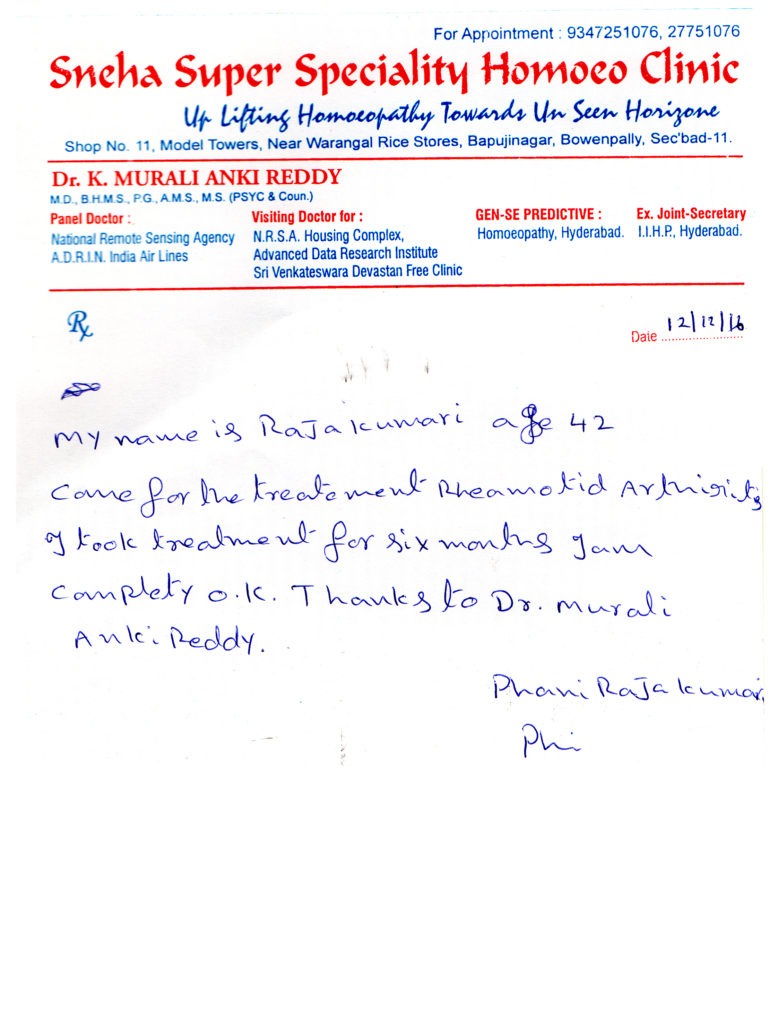 For Appointment : 9347251076, 27751076
Sneha Super Speciality Homoeo Clinic
Up Lifting Homoeopathy Towards Un Seen Horizone
Shop No. 11, Model Towers, Near Warangal Rice Stores, Bapujinagar, Bowenpally, Sec'bad-11.
Dr. K. MURALI ANKI REDDY
M.D., B.H.M.S., P.G., A.M.S., M.S. (PSYC & Coun.)
Panel Doctor :
National Remote Sensing Agency
A.D.R.I.N. India Air Lines
Visiting Doctor for :
N.R.S.A. Housing Complex,
Advanced Data Research Institute
Sri Venkateswara Devastan Free Clinic
GEN-SE PREDICTIVE :
Homoeopathy, Hyderabad.
Ex. Joint-Secretary
I.I.H.P., Hyderabad.
Rx
Date 12/12/16
My name is Raja kumari age 42
Come for the treatement Rheamotid Arthisitis
I took treatment for six months I am
Complety O.K. Thanks to Dr. Murali
Anki Reddy.
Phani Raja kumari
Phi